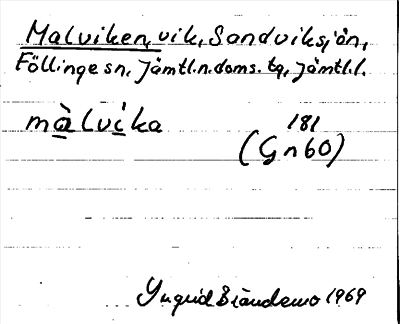 Malviken, vik, Sandviksjön,
Föllinge sn, Jämtl.n.doms. tg, Jämtl.l.
màlvika
181
(Gn60)
Yngrid 1969